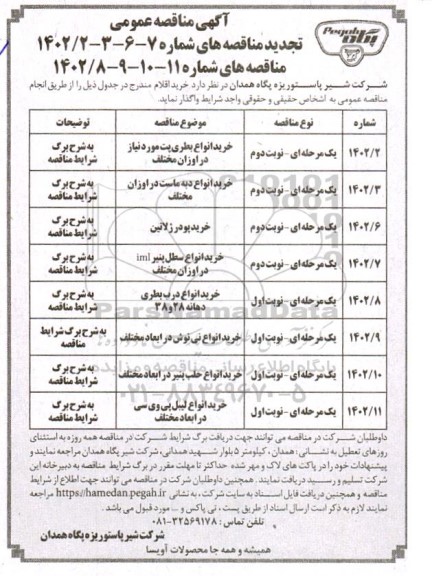 آگهی مناقصه عمومی
تجدید مناقصه های شماره ۷-۶-۳-۱۴۰۲/۲
مناقصه های شماره ۱۱-۱۰-۹-۱۴۰۲/۸
Pegah
پگاه
شرکت شیر پاستوریزه پگاه همدان در نظر دارد خرید اقلام مندرج در جدول ذیل را از طریق انجام
مناقصه عمومی به اشخاص حقیقی و حقوقی واجد شرایط واگذار نماید.
شماره نوع مناقصه موضوع مناقصه توضیحات
۱۴۰۲/۲ یک مرحله ای - نوبت دوم خرید انواع بطری پت مورد نیاز در اوزان مختلف به شرح برگ شرایط مناقصه
۱۴۰۲/۳ یک مرحله ای - نوبت دوم خرید انواع دبه ماست در اوزان مختلف به شرح برگ شرایط مناقصه
۱۴۰۲/۶ یک مرحله ای - نوبت دوم خرید پودر ژلاتین به شرح برگ شرایط مناقصه
۱۴۰۲/۷ یک مرحله ای - نوبت دوم خرید انواع سطل پنیر iml در اوزان مختلف به شرح برگ شرایط مناقصه
۱۴۰۲/۸ یک مرحله ای - نوبت اول خرید انواع درب بطری دهانه ۲۸ و ۳۸ به شرح برگ شرایط مناقصه
۱۴۰۲/۹ یک مرحله ای - نوبت اول خرید انواع نی نوش در ابعاد مختلف به شرح برگ شرایط مناقصه
۱۴۰۲/۱۰ یک مرحله ای - نوبت اول خرید انواع حلب پنیر در ابعاد مختلف به شرح برگ شرایط مناقصه
۱۴۰۲/۱۱ یک مرحله ای - نوبت اول خرید انواع لیبل پی وی سی در ابعاد مختلف به شرح برگ شرایط مناقصه
ParsNamadData
پایگاه اطلاع رسانی مناقصه و مزایده
۰۲۱-۸۸۳۴۹۶۷۰-۵
داوطلبان شرکت در مناقصه می توانند جهت دریافت برگ شرایط شرکت در مناقصه همه روزه به استثنای
روزهای تعطیل به نشانی : همدان ، کیلومتر ۵ بلوار شهید همدانی، شرکت شیر پگاه همدان مراجعه نمایند و
پیشنهادات خود را در پاکت های لاک و مهر شده حداکثر تا مهلت مقرر در برگ شرایط مناقصه به دبیرخانه این
شرکت تسلیم و رسید دریافت نمایند. همچنین داوطلبان شرکت در مناقصه می توانند جهت اطلاع از شرایط
مناقصه و همچنین دریافت فایل اسناد به سایت شرکت ، به نشانی https://hamedan.pegah.ir مراجعه
نمایند لازم به ذکر است ارسال اسناد از طریق پست ، نی پاکس و ... مورد قبول می باشد .
تلفن تماس : ۳۲۵۶۹۱۷۸-۰۸۱
شرکت شیر پاستوریزه پگاه همدان
همیشه و همه جا محصولات آویسا